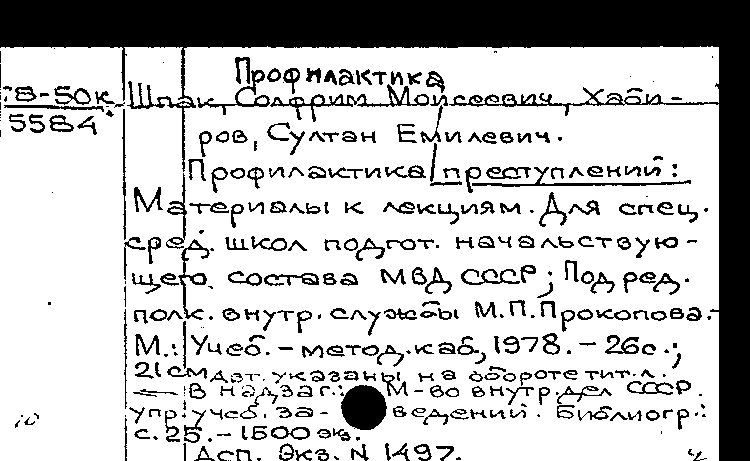 Профилактика
78-50к Шпак, Солфрим Мойсеевич, Хаби-
5584
ров, Султан Емилевич.
Профилактика преступлений:
Материалы к лекциям. Для спец.
сред. школ подгот. начальствую-
щего состава МВД СССР; Под ред.
полк. внутр. службы М.П.Прокопова.-
М.: Учеб.-метод.каб, 1978. - 26с.;
21см Авт. указаны на обороте тит.л.
В надзаг.: М-во внутр.дел СССР.
упр.учеб. за- ведений. Библиогр.:
с. 25. - 1500 экз.
Дсп. Экз. N 1497.